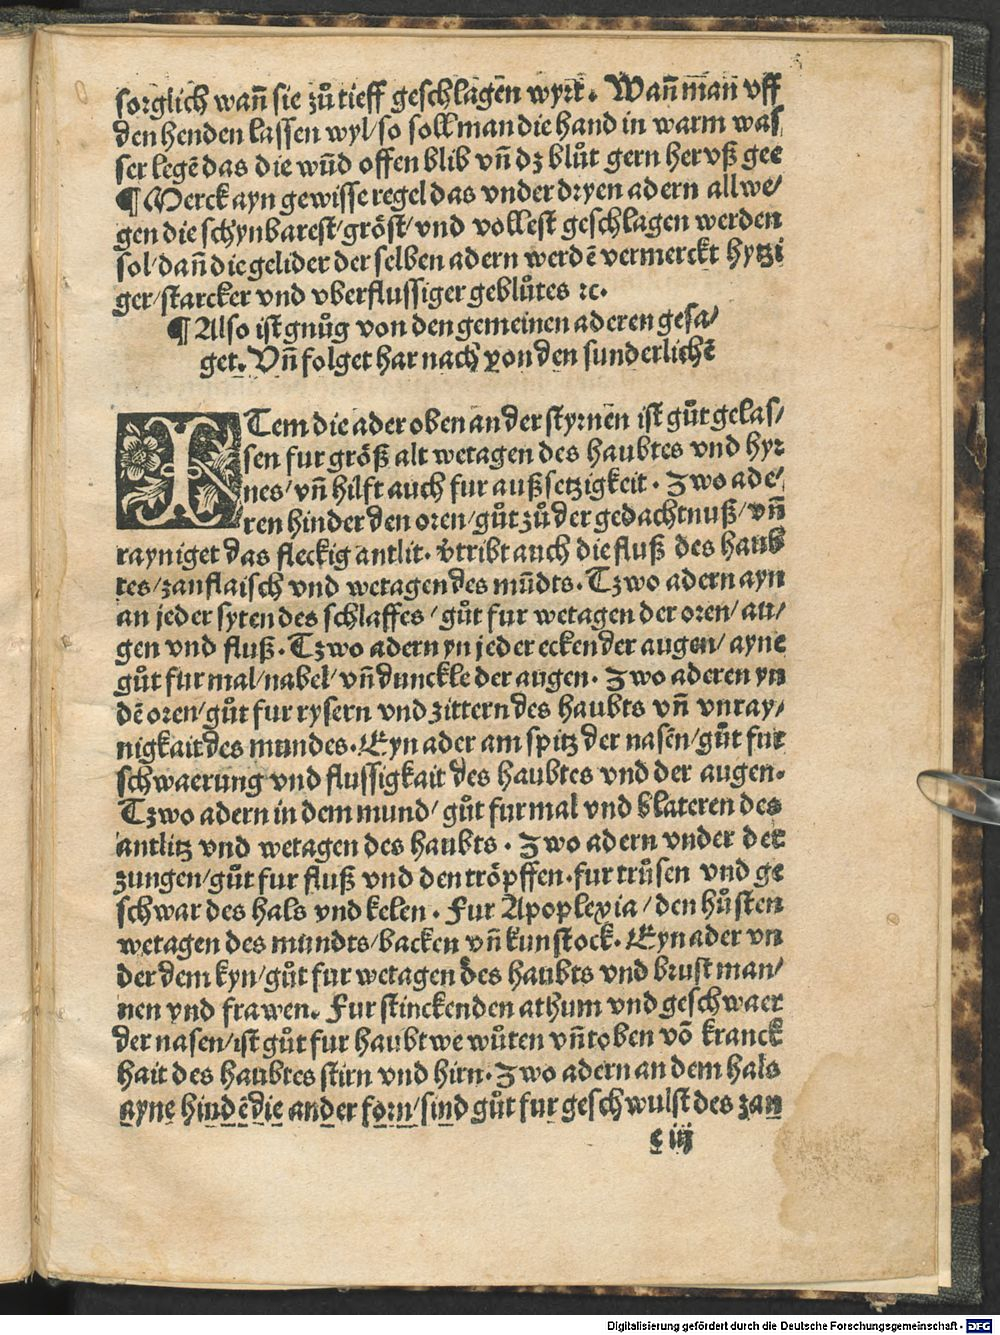 sorglich wañ sie zů tieff geschlagen wyrt. Wañ man vff
den henden lassen wyl/so soll man die hand in warm was/
ser legē das die wūd offen blib vñ dz blůt gern her vß gee
¶ Merck ayn gewisse regel das vnder dryen adern allwe/
gen die schynbarest/gröst/vnd vollest geschlagen werden
sol/dañ die gelider der selben adern werdē vermerckt hytzi
ger/starcker vnd vberflussiger geblůtes ꝛc.
¶ Also ist gnůg von den gemeinen aderen gesa/
get. Vñ folget har nach von den sunderlichē
ITem die ader oben an der styrnen ist gůt gelas/
sen fur größ alt wetagen des haubtes vnd hyr
nes/vñ hilft auch fur außsetzigkeit. Zwo ade/
ren hinder den oren/gůt zů der gedachtnuß/vñ
rayniget das fleckig antlit. v̄tribt auch die fluß des haub
tes/zanflaisch vnd wetagen des mūdts. Tzwo adern ayn
an jeder syten des schlaffes/gůt fur wetagen der oren/au/
gen vnd fluß. Tzwo adern yn jeder ecken der augen/ayne
gůt fur mal/nabel/vñ dunckle der augen. Zwo aderen yn
dē oren/gůt fur rysern vnd zittern des haubts vñ vnray/
nigkait des mundes. Eyn ader am spitz der nasen/gůt fur
schwaerung vnd flussigkait des haubtes vnd der augen.
Tzwo adern in dem mund/gůt fur mal vnd blateren des
antlitz vnd wetagen des haubts. Zwo adern vnder der
zungen/gůt fur fluß vnd den tröpffen. fur trůsen vnd ge
schwar des hals vnd kelen. Fur Apoplexia/den hůsten
wetagen des mundts/backen vñ kunstock. Eyn ader vn
der dem kyn/gůt fur wetagen des haubts vnd brust man/
nen vnd frawen. Fur stinckenden athum vnd geschwaer
der nasen/ist gůt fur haubtwe wůten vñ toben vō kranck
hait des haubtes stirn vnd hirn. Zwo adern an dem hals
ayne hindē die ander forn/sind gůt fur geschwulst des zan
c iij
Digitalisierung gefördert durch die Deutsche Forschungsgemeinschaft - DFG